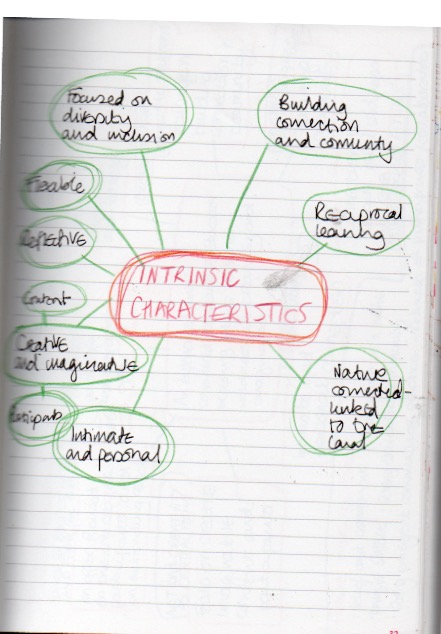 Focused on
diversity
and inclusion
Building
connection
and community
Flexible
Reciprocal
learning
Reflective
INTRINSIC
CHARACTERISTICS
Content
Creative
and imaginative
Native
connected-
linked
to the
Canal
Participants
Intimate
and personal